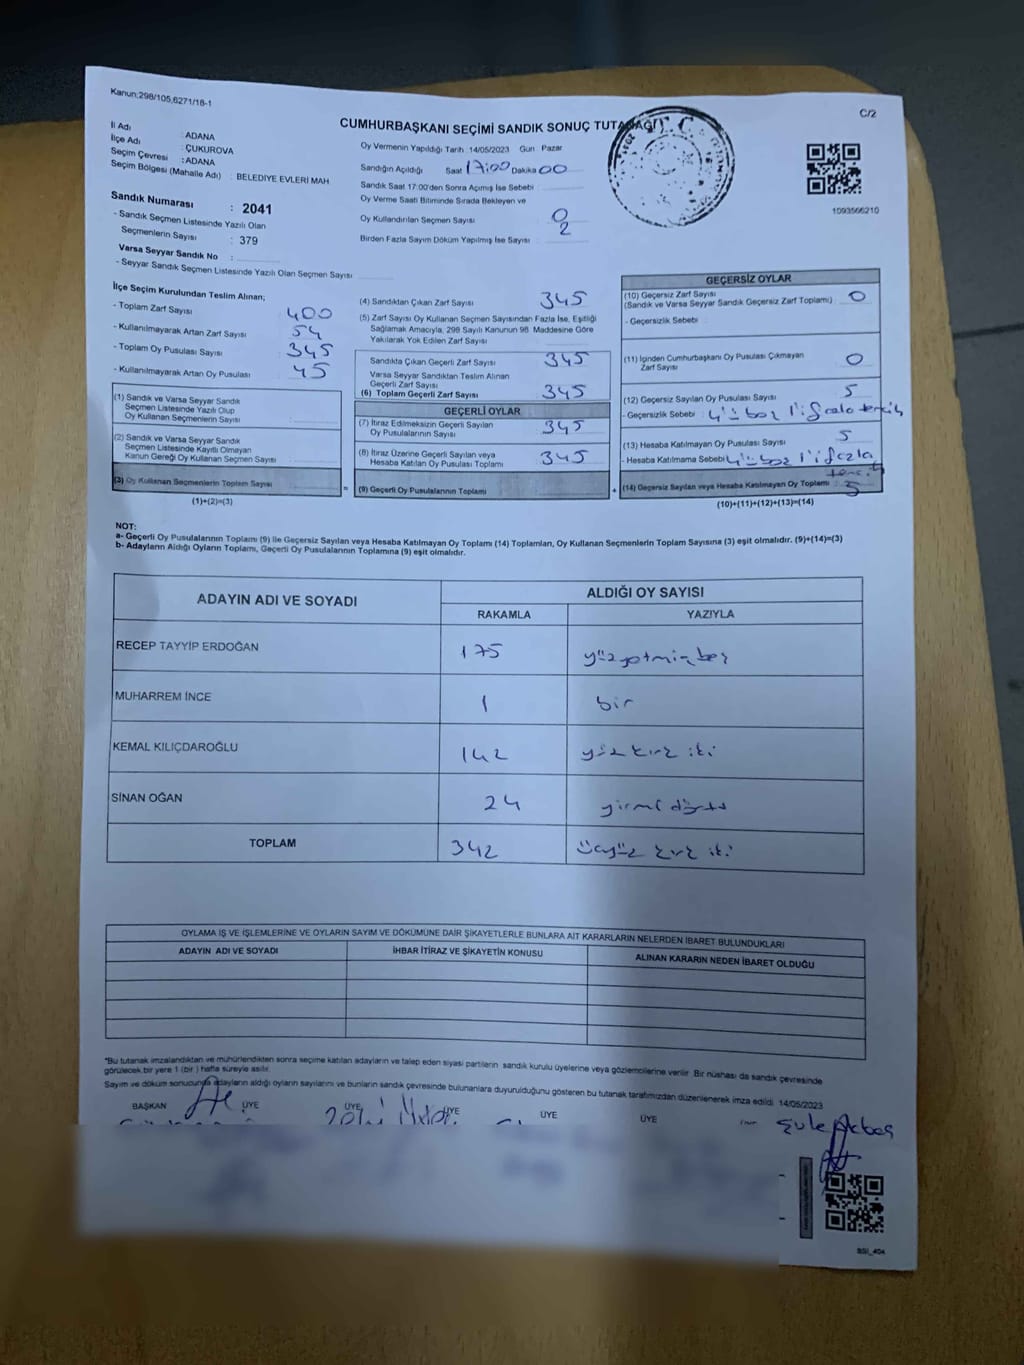 Kanun:298/105,6271/18-1
C/2
CUMHURBAŞKANI SEÇİMİ SANDIK SONUÇ TUTANAĞI
İl Adı : ADANA
İlçe Adı : ÇUKUROVA
Seçim Çevresi : ADANA
Seçim Bölgesi (Mahalle Adı) : BELEDİYE EVLERİ MAH
Sandık Numarası : 2041
- Sandık Seçmen Listesinde Yazılı Olan
Seçmenlerin Sayısı : 379
Varsa Seyyar Sandık No :
- Seyyar Sandık Seçmen Listesinde Yazılı Olan Seçmen Sayısı
Oy Vermenin Yapıldığı Tarih 14/05/2023 Gün Pazar
Sandığın Açıldığı Saat 17:00 Dakika 00
Sandık Saat 17:00'den Sonra Açmış İse Sebebi
Oy Verme Saati Bitiminde Sırada Bekleyen ve
Oy Kullandırılan Seçmen Sayısı 0
Birden Fazla Sayım Döküm Yapılmış İse Sayısı 2
1093566210
İlçe Seçim Kurulundan Teslim Alınan;
- Toplam Zarf Sayısı 400
- Kullanılmayarak Artan Zarf Sayısı 54
- Toplam Oy Pusulası Sayısı 345
- Kullanılmayarak Artan Oy Pusulası 45
(1) Sandık ve Varsa Seyyar Sandık
Seçmen Listesinde Yazılı Olup
Oy Kullanan Seçmenlerin Sayısı
(2) Sandık ve Varsa Seyyar Sandık
Seçmen Listesinde Kayıtlı Olmayan
Kanun Gereği Oy Kullanan Seçmen Sayısı
(3) Oy Kullanan Seçmenlerin Toplam Sayısı
(1)+(2)=(3)
(4) Sandıktan Çıkan Zarf Sayısı 345
(5) Zarf Sayısı Oy Kullanan Seçmen Sayısından Fazla İse, Eşitliği
Sağlamak Amacıyla, 298 Sayılı Kanunun 98. Maddesine Göre
Yakılarak Yok Edilen Zarf Sayısı
Sandıkta Çıkan Geçerli Zarf Sayısı 345
Varsa Seyyar Sandıktan Teslim Alınan
Geçerli Zarf Sayısı
(6) Toplam Geçerli Zarf Sayısı 345
GEÇERLİ OYLAR
(7) İtiraz Edilmeksizin Geçerli Sayılan
Oy Pusulalarının Sayısı 345
(8) İtiraz Üzerine Geçerli Sayılan veya
Hesaba Katılan Oy Pusulası Toplamı 345
= (9) Geçerli Oy Pusulalarının Toplamı +
GEÇERSİZ OYLAR
(10) Geçersiz Zarf Sayısı 0
(Sandık ve Varsa Seyyar Sandık Geçersiz Zarf Toplamı)
- Geçersizlik Sebebi
(11) İçinden Cumhurbaşkanı Oy Pusulası Çıkmayan
Zarf Sayısı 0
(12) Geçersiz Sayılan Oy Pusulası Sayısı 5
- Geçersizlik Sebebi : 4'ü boş 1'i fazla tercih
(13) Hesaba Katılmayan Oy Pusulası Sayısı 5
- Hesaba Katılmama Sebebi 4'ü boş 1'i fazla
tercih
(14) Geçersiz Sayılan veya Hesaba Katılmayan Oy Toplamı : 5
(10)+(11)+(12)+(13)=(14)
NOT:
a- Geçerli Oy Pusulalarının Toplamı (9) ile Geçersiz Sayılan veya Hesaba Katılmayan Oy Toplamı (14) Toplamları, Oy Kullanan Seçmenlerin Toplam Sayısına (3) eşit olmalıdır. (9)+(14)=(3)
b- Adayların Aldığı Oyların Toplamı, Geçerli Oy Pusulalarının Toplamına (9) eşit olmalıdır.
ADAYIN ADI VE SOYADI
ALDIĞI OY SAYISI
RAKAMLA YAZIYLA
RECEP TAYYİP ERDOĞAN 175 yüzyetmişbeş
MUHARREM İNCE 1 bir
KEMAL KILIÇDAROĞLU 142 yüz kırk iki
SİNAN OĞAN 24 yirmi dört
TOPLAM 342 üçyüz kırk iki
OYLAMA İŞ VE İŞLEMLERİNE VE OYLARIN SAYIM VE DÖKÜMÜNE DAİR ŞİKAYETLERLE BUNLARA AİT KARARLARIN NELERDEN İBARET BULUNDUKLARI
ADAYIN ADI VE SOYADI İHBAR İTİRAZ VE ŞİKAYETİN KONUSU ALINAN KARARIN NEDEN İBARET OLDUĞU
*Bu tutanak imzalandıktan ve mühürlendikten sonra seçime katılan adayların ve talep eden siyasi partilerin sandık kurulu üyelerine veya gözlemcilerine verilir. Bir nüshası da sandık çevresinde
görülecek bir yere 1 (bir ) hafta süreyle asılır.
Sayım ve döküm sonucunda adayların aldığı oyların sayılarını ve bunların sandık çevresinde bulunanlara duyurulduğunu gösteren bu tutanak tarafımızdan düzenlenerek imza edildi. 14/05/2023
BAŞKAN ÜYE ÜYE ÜYE ÜYE ÜYE
Şule Akbaş
BSI_404